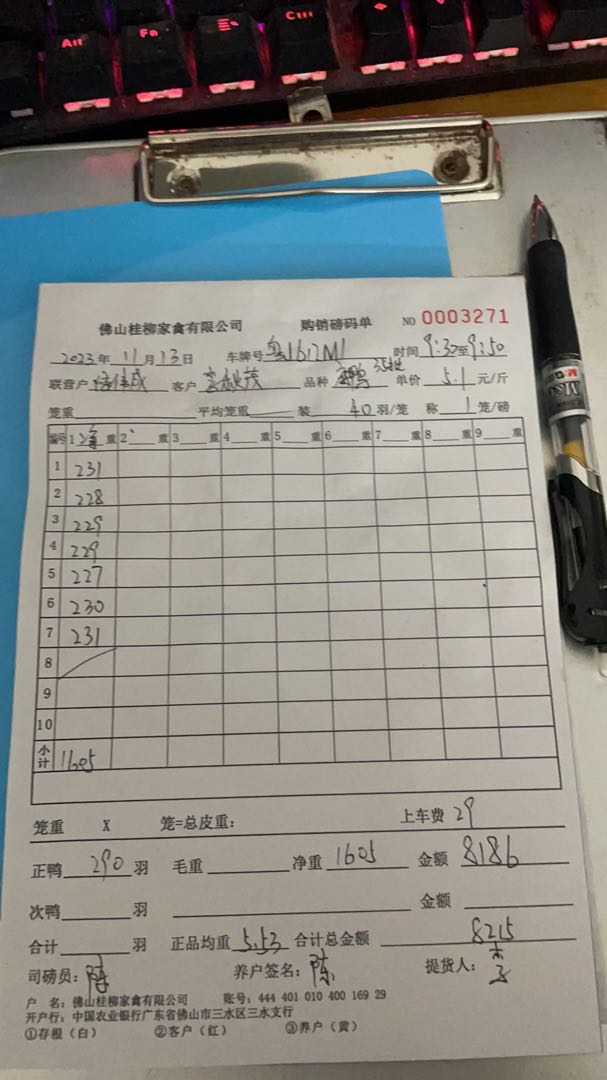 Alt Fn Ctrl
佛山桂柳家禽有限公司 购销磅码单 NO 0003271
2023年 11月13日 车牌号 粤J617M1 时间 9:30至9:50
联营户 客户 品种 35批 单价 5.1 元/斤
笼重 平均笼重 装 40 羽/笼 称 1 笼/磅
编号 1 净 重 2 重 3 重 4 重 5 重 6 重 7 重 8 重 9 重
1 231
2 228
3 229
4 229
5 227
6 230
7 231
8
9
10
小计 1605
笼重 X 笼=总皮重: 上车费 29
正鸭 290 羽 毛重 净重 1605 金额 8186
次鸭 羽 金额
合计 羽 正品均重 5.53 合计总金额 8215
司磅员: 陈 养户签名: 陈 提货人:
户 名: 佛山桂柳家禽有限公司 账号: 444 401 010 400 169 29
开户行: 中国农业银行广东省佛山市三水区三水支行
①存根(白) ②客户(红) ③养户(黄)
M&G